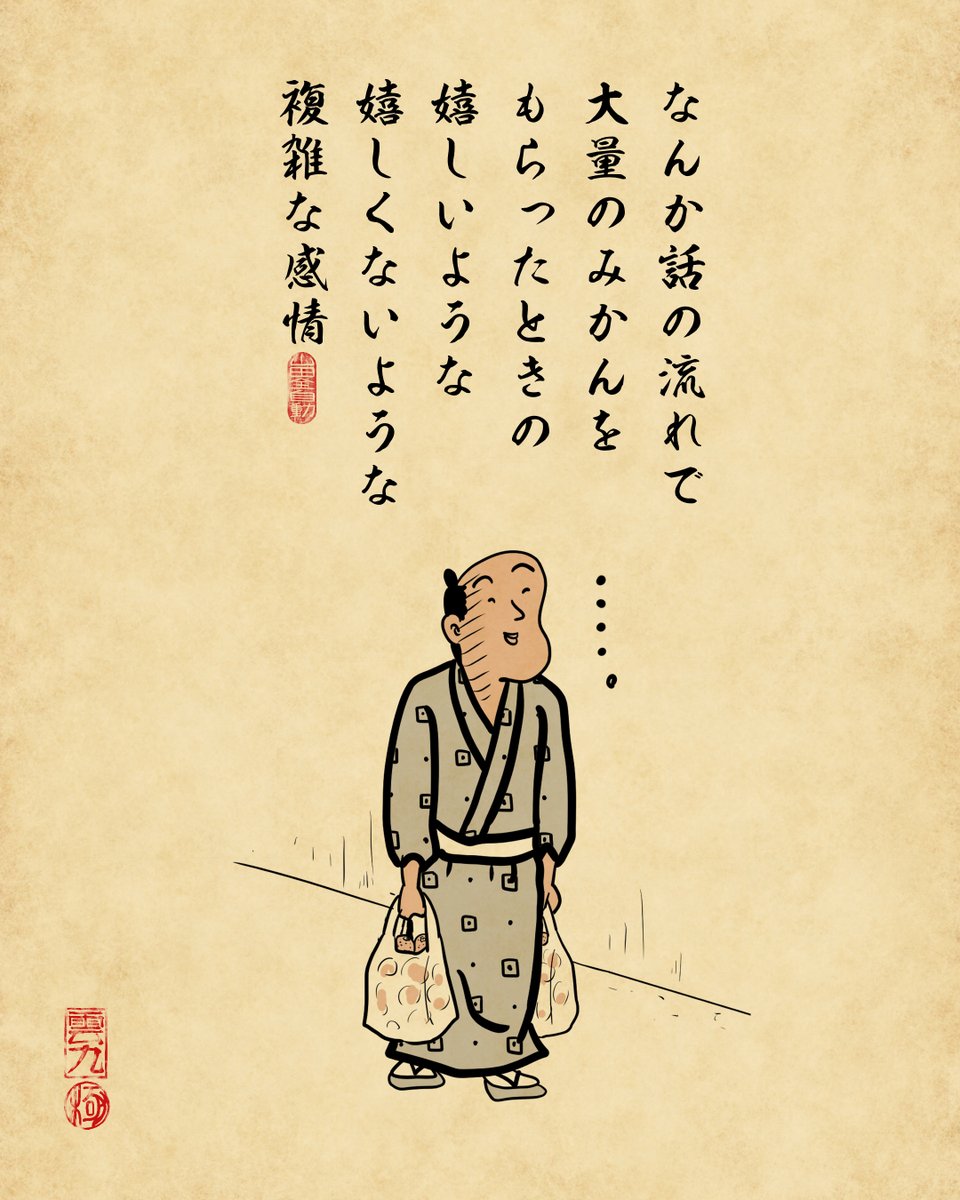 なんか話の流れで
大量のみかんを
もらったときの
嬉しいような
嬉しくないような
複雑な感情